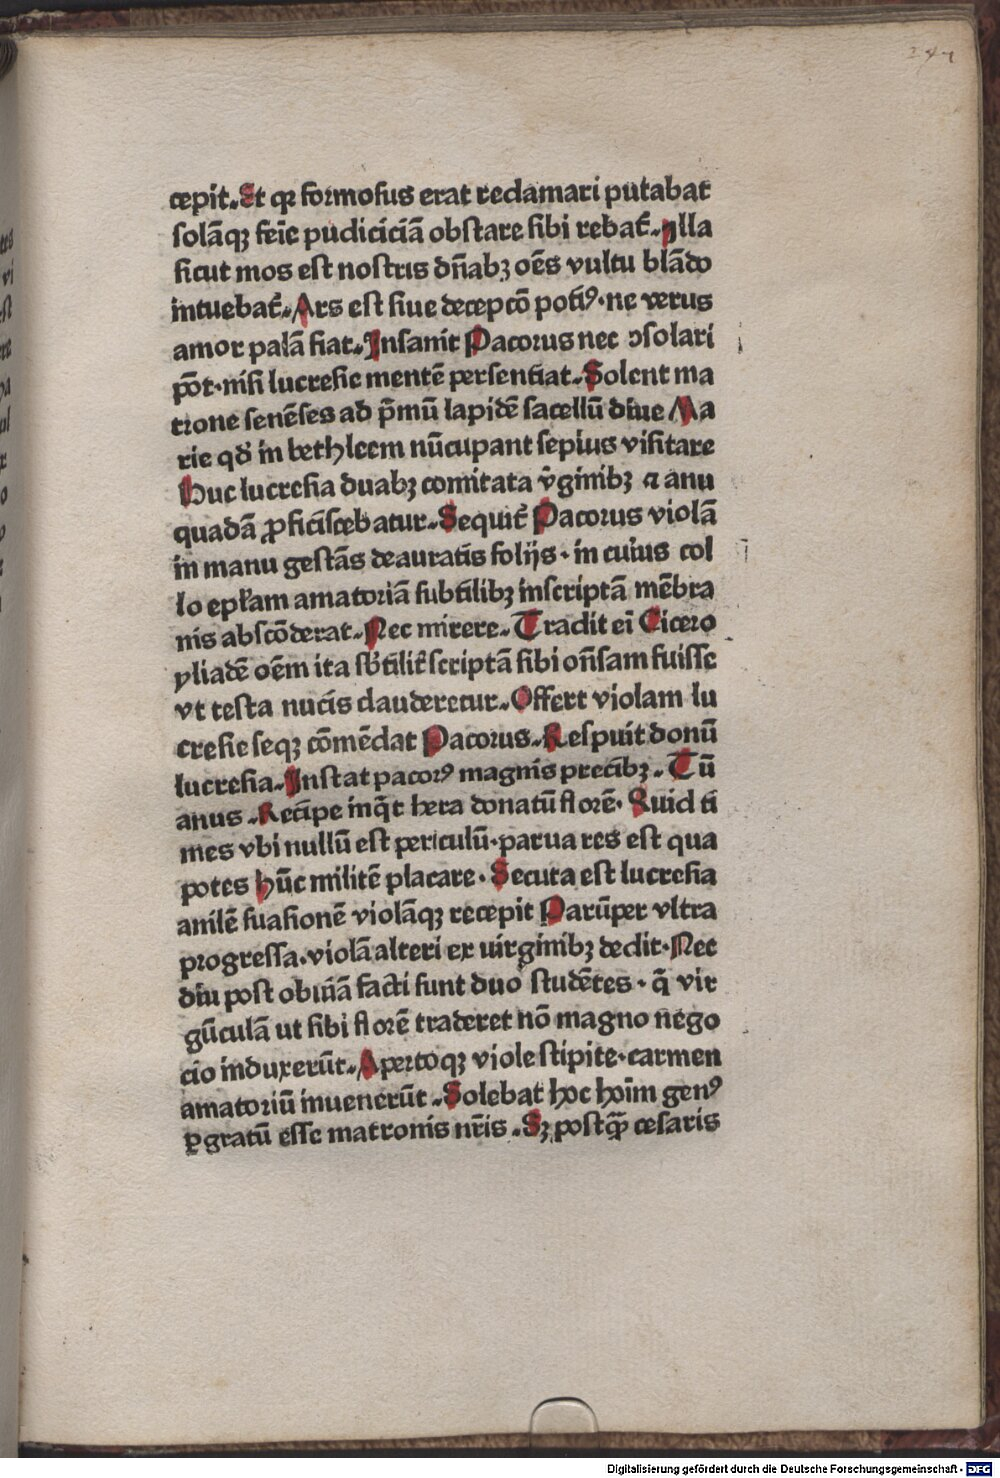 247
cepit. Et qꝛ formosus erat redamari putabat
solāqꝫ feīe pudiciciā obstare sibi rebat᷑. Illa
sicut mos est nostris dn̄abꝫ oēs vultu blādo
intuebat᷑. Ars est siue decepcō potiꝰ·ne verus
amor palā fiat. Insanit Pacorus nec ↄsolari
pōt·nisi lucresie mentē persentiat. Solent ma
trone senēses ad pͫmū lapidē sacellū diue Ma
rie qd̛ in bethleem nūcupant sepius visitare
Huc lucresia duabꝫ comitata v̛ginibꝫ ⁊ anu
quadā ꝓficiscebatur. Sequit᷑ Pacorus violā
in manu gestās deauratis folijs· in cuius col
lo epl̄am amatoriā subtilibꝫ inscriptā mēbra
nis abscōderat. Nec mirere. Tradit ei Cicero
yliadē oēm ita sb̛tilit᷑ scriptā sibi on̄sam fuisse
vt testa nucis clauderetur. Offert violam lu
cresie seqꝫ cōmēdat Pacorus. Respuit donū
lucresia. Instat pacorꝰ magnis precibꝫ. Tū
anus. Recipe inq̄t hera donatū florē· Quid ti
mes vbi nullū est periculū·parua res est qua
potes hūc militē placare· Secuta est lucresia
anilē suasionē violāqꝫ recepit Parūper vltra
progressa·violā alteri ex uirginibꝫ dedit·Nec
diu post obuiā facti sunt duo studētes· q̄ vir
gūculā ut sibi florē traderet nō magno nego
cio induxerūt. Apertoqꝫ viole stipite·carmen
amatoriū inuenerūt. Solebat hoc hoīm genꝰ
ꝑgratū esse matronis nr̄is. Sꝫ postqꝫ̄ cesaris
Digitalisierung gefördert durch die Deutsche Forschungsgemeinschaft - DFG